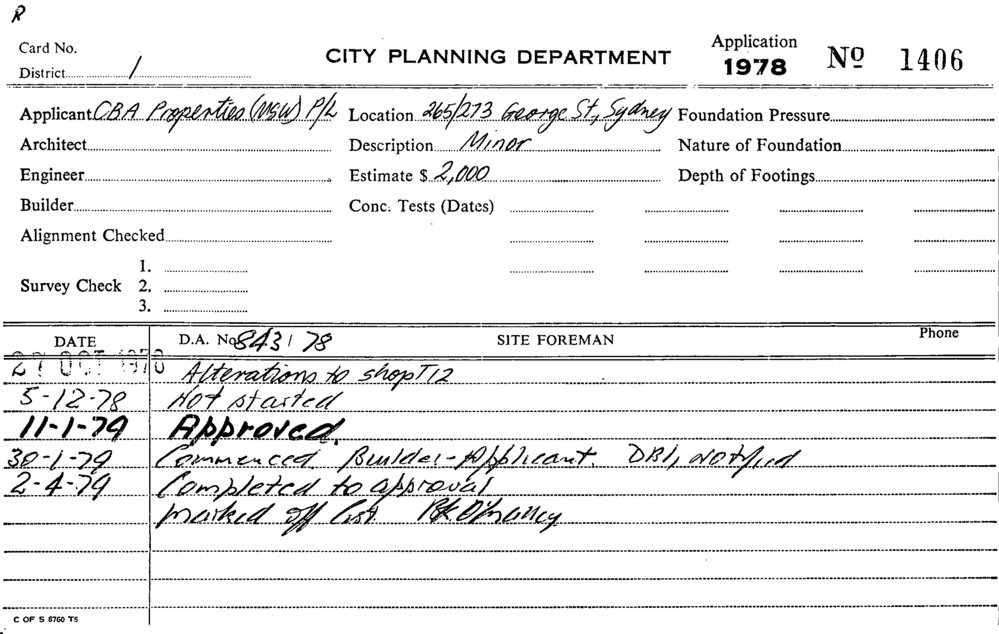 R
Card No.
District 1
CITY PLANNING DEPARTMENT
Application
1978 Nº 1406
Applicant CBA Properties (NSW) P/L Location 265/273 George St, Sydney Foundation Pressure
Architect Description Minor Nature of Foundation
Engineer Estimate $ 2,000 Depth of Footings
Builder Conc. Tests (Dates)
Alignment Checked
1.
Survey Check 2.
3.
DATE D.A. No 843/78 SITE FOREMAN Phone
27 OCT 1978 Alterations to shop T12
5-12-78 Not started
11-1-79 Approved.
30-1-79 Commenced. Builder-Applicant. DBI, notified
2-4-79 Completed to approval
marked off list.
C OF S 5760 T5